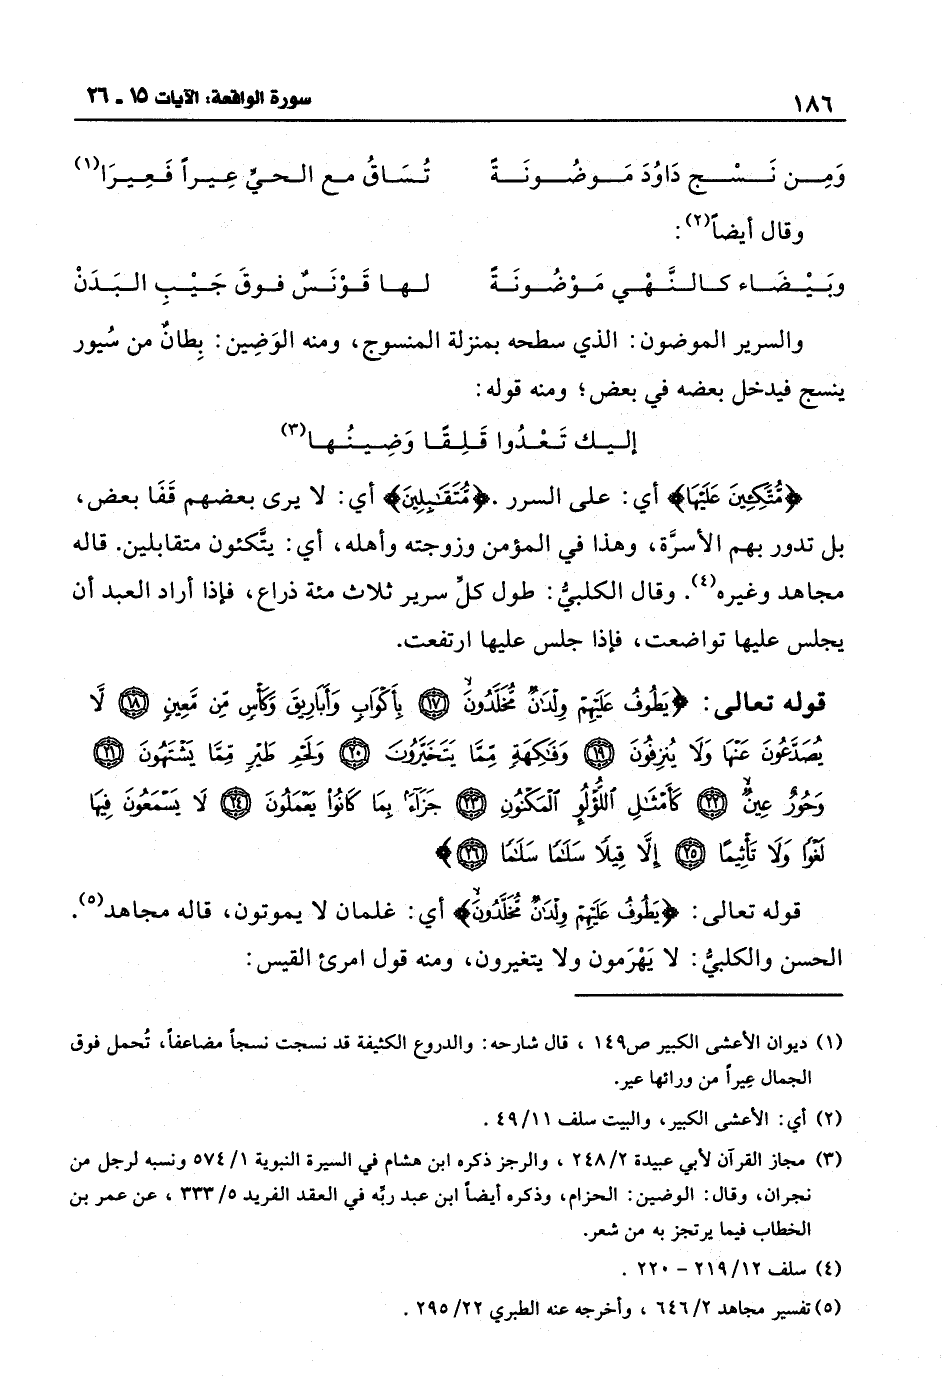 ١٨٦
سورة الواقعة: الآيات ١٥ ـ ٢٦
وَمِـن نَـسْـجِ دَاوُدَ مَـوضُـونَـةً تُسَاقُ مع الحيِّ عِيراً فَعِيرَا(١)
وقال أيضاً(٢):
وبَـيْـضَـاء كـالـنَّـهْـيِ مَـوْضُـونَـةً لـهـا قَـوْنَـسٌ فـوقَ جَـيْـبِ الـبَـدَنْ
والسرير الموضون: الذي سطحه بمنزلة المنسوج، ومنه الوَضِين: بِطانٌ من سُيور
ينسج فيدخل بعضه في بعض؛ ومنه قوله:
إلـيـك تَـعْـدُوا قَـلِـقًـا وَضِـيـنُـهـا(٣)
﴿مُّتَّكِـِٔينَ عَلَيْهَا﴾ أي: على السرر .﴿مُتَقَٰبِلِينَ﴾ أي: لا يرى بعضهم قَفَا بعض،
بل تدور بهم الأسرَّة، وهذا في المؤمن وزوجته وأهله، أي: يتَّكئون متقابلين. قاله
مجاهد وغيره(٤). وقال الكلبيُّ: طول كلِّ سرير ثلاث مئة ذراع، فإذا أراد العبد أن
يجلس عليها تواضعت، فإذا جلس عليها ارتفعت.
قوله تعالى: ﴿يَطُوفُ عَلَيْهِمْ وِلْدَٰنٌ مُّخَلَّدُونَ ۝١٧ بِأَكْوَابٍ وَأَبَارِيقَ وَكَأْسٍ مِّن مَّعِينٍ ۝١٨ لَّا
يُصَدَّعُونَ عَنْهَا وَلَا يُنزِفُونَ ۝١٩ وَفَٰكِهَةٍ مِّمَّا يَتَخَيَّرُونَ ۝٢٠ وَلَحْمِ طَيْرٍ مِّمَّا يَشْتَهُونَ ۝٢١
وَحُورٌ عِينٌ ۝٢٢ كَأَمْثَٰلِ اللُّؤْلُوِٕ الْمَكْنُونِ ۝٢٣ جَزَآءًۢ بِمَا كَانُوا۟ يَعْمَلُونَ ۝٢٤ لَا يَسْمَعُونَ فِيهَا
لَغْوًا وَلَا تَأْثِيمًا ۝٢٥ إِلَّا قِيلًا سَلَٰمًا سَلَٰمًا ۝٢٦﴾
قوله تعالى: ﴿يَطُوفُ عَلَيْهِمْ وِلْدَٰنٌ مُّخَلَّدُونَ﴾ أي: غلمان لا يموتون، قاله مجاهد(٥).
الحسن والكلبيُّ: لا يَهْرَمون ولا يتغيرون، ومنه قول امرئ القيس:
(١) ديوان الأعشى الكبير ص١٤٩ ، قال شارحه: والدروع الكثيفة قد نسجت نسجاً مضاعفاً، تُحمل فوق
الجمال عِيراً من ورائها عير.
(٢) أي: الأعشى الكبير، والبيت سلف ١١/ ٤٩ .
(٣) مجاز القرآن لأبي عبيدة ٢/ ٢٤٨ ، والرجز ذكره ابن هشام في السيرة النبوية ١/ ٥٧٤ ونسبه لرجل من
نجران، وقال: الوضين: الحزام، وذكره أيضاً ابن عبد ربِّه في العقد الفريد ٥/ ٣٣٣ ، عن عمر بن
الخطاب فيما يرتجز به من شعر.
(٤) سلف ١٢/ ٢١٩ - ٢٢٠ .
(٥) تفسير مجاهد ٢/ ٦٤٦ ، وأخرجه عنه الطبري ٢٢/ ٢٩٥ .